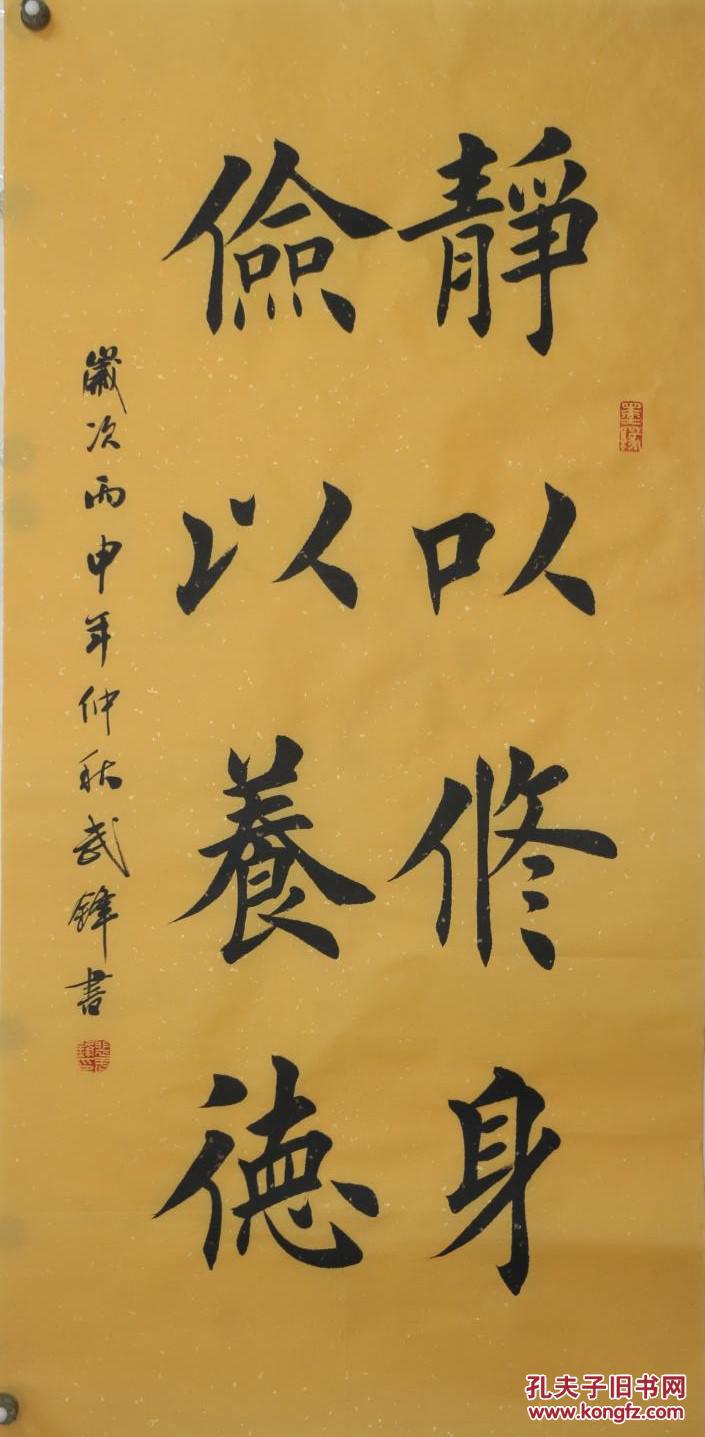 靜以修身
儉以養德
歲次丙申年仲秋武鋒書
墨緣
孔夫子旧书网
www.kongfz.com